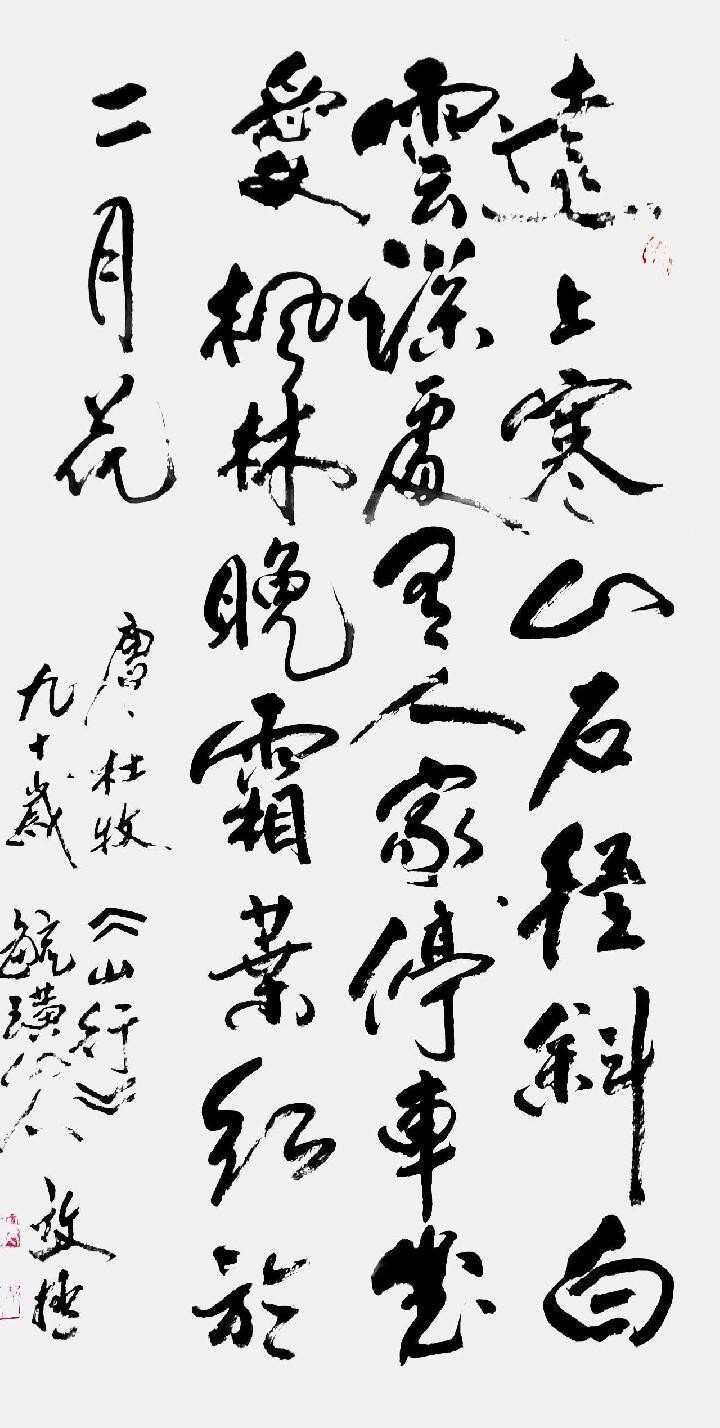 遠上寒山石徑斜白
雲深處有人家停車坐
愛楓林晚霜葉紅於
二月花
唐 杜牧《山行》
九十歲毓璜